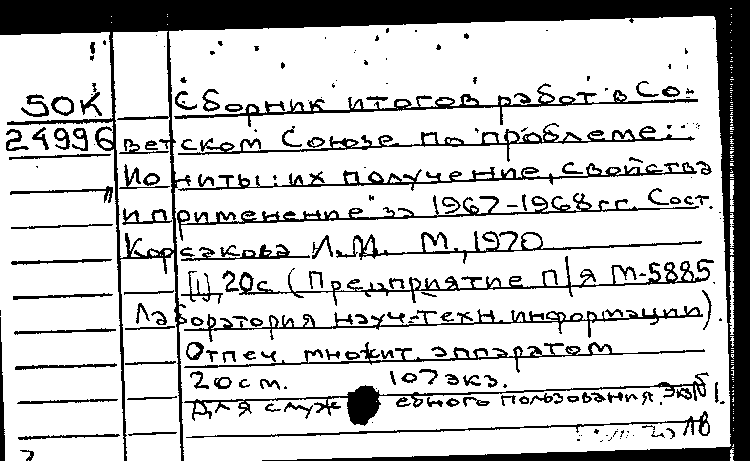 50К Сборник итогов работ в Со-
24996 ветском Союзе по проблеме:
"Иониты: их получение, свойства
и применение" за 1967-1968 гг. Сост.
Корсакова И.М. М., 1970
[1], 20с (Предприятие п/я М-5885
Лаборатория науч.-техн. информации).
Отпеч. множит. аппаратом
20см. 107 экз.
Для служебного пользования. Экз № 1.
ЛВ